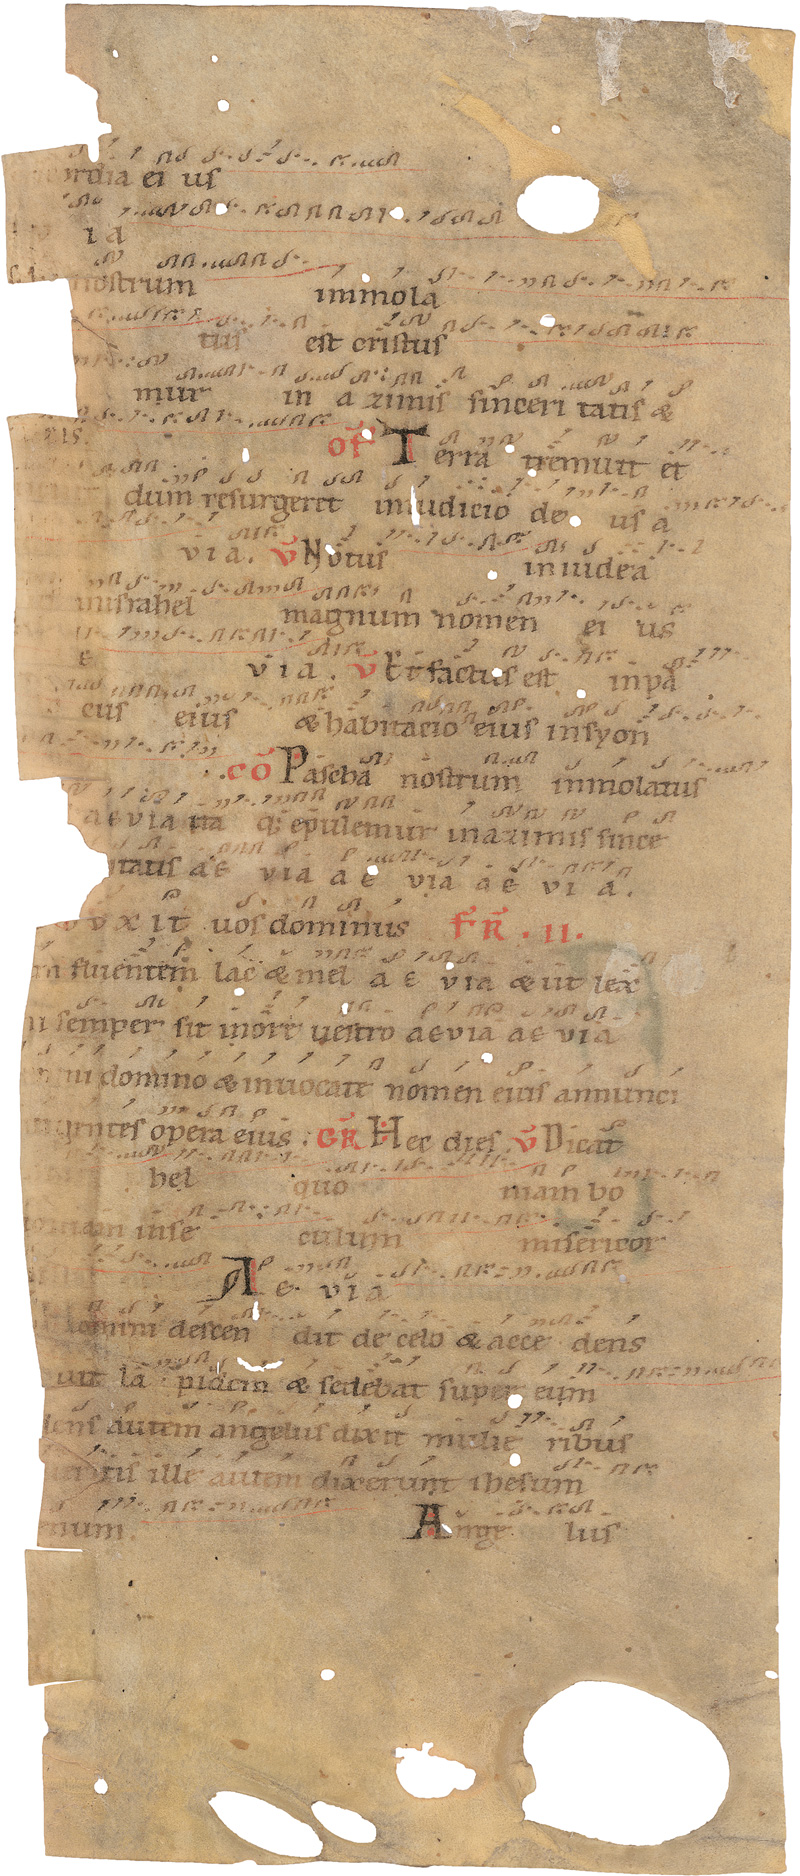 ordia ei us
ia
nostrum immola
tus est cristus
mur in azimis sinceri tatis &
of Terra tremuit et
dum resurgeret iniudicio de us a
via. v Notus iniudea
inisrahel magnum nomen ei us
e via. v Et factus est inpa
cus eius & habitacio eius insyon
co Pascha nostrum immolatus
aevia ita q; epulemur inazimis since
ritatis ae via ae via ae vi a.
vxit uos dominus fR. .II.
m fluentem lac & mel ae via & ut lex
ni semper sit inore uestro aevia ae via
ini domino & inuocate nomen eius annunci
gentes opera eius. GR Hec dies. v Dicat
hel quo mam bo
oniam inse culum misericor
Ae via
domini descen dit de celo & acce dens
uit la pidem & sedebat super eum
dens autem angelus dixit mulie ribus
eritis ille autem dixerunt ihesum
enum. Ange lus